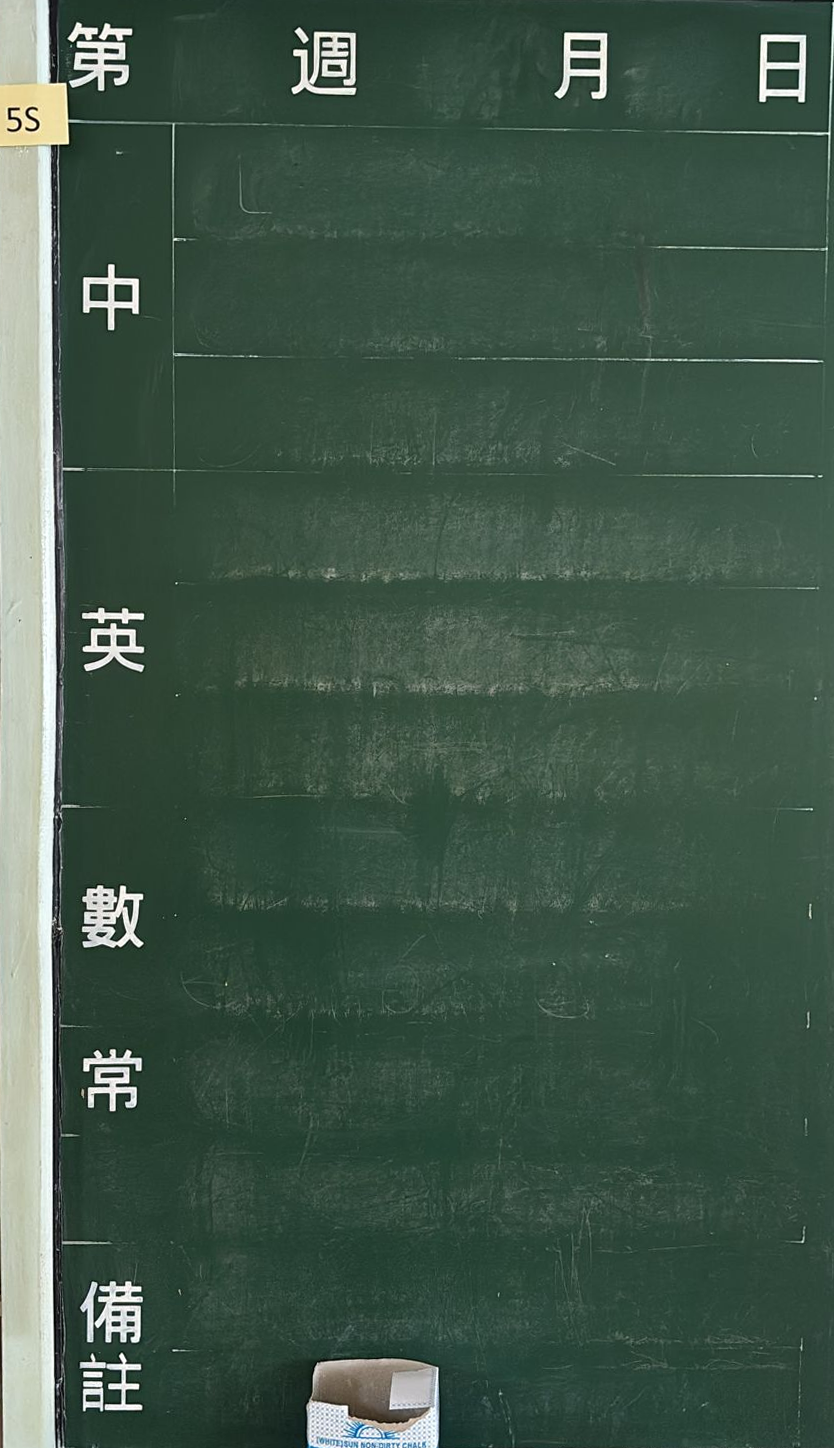 第 週 月 日
5S
中
英
數
常
備
註
(WHITE)SUN NON-DIRTY CHALK